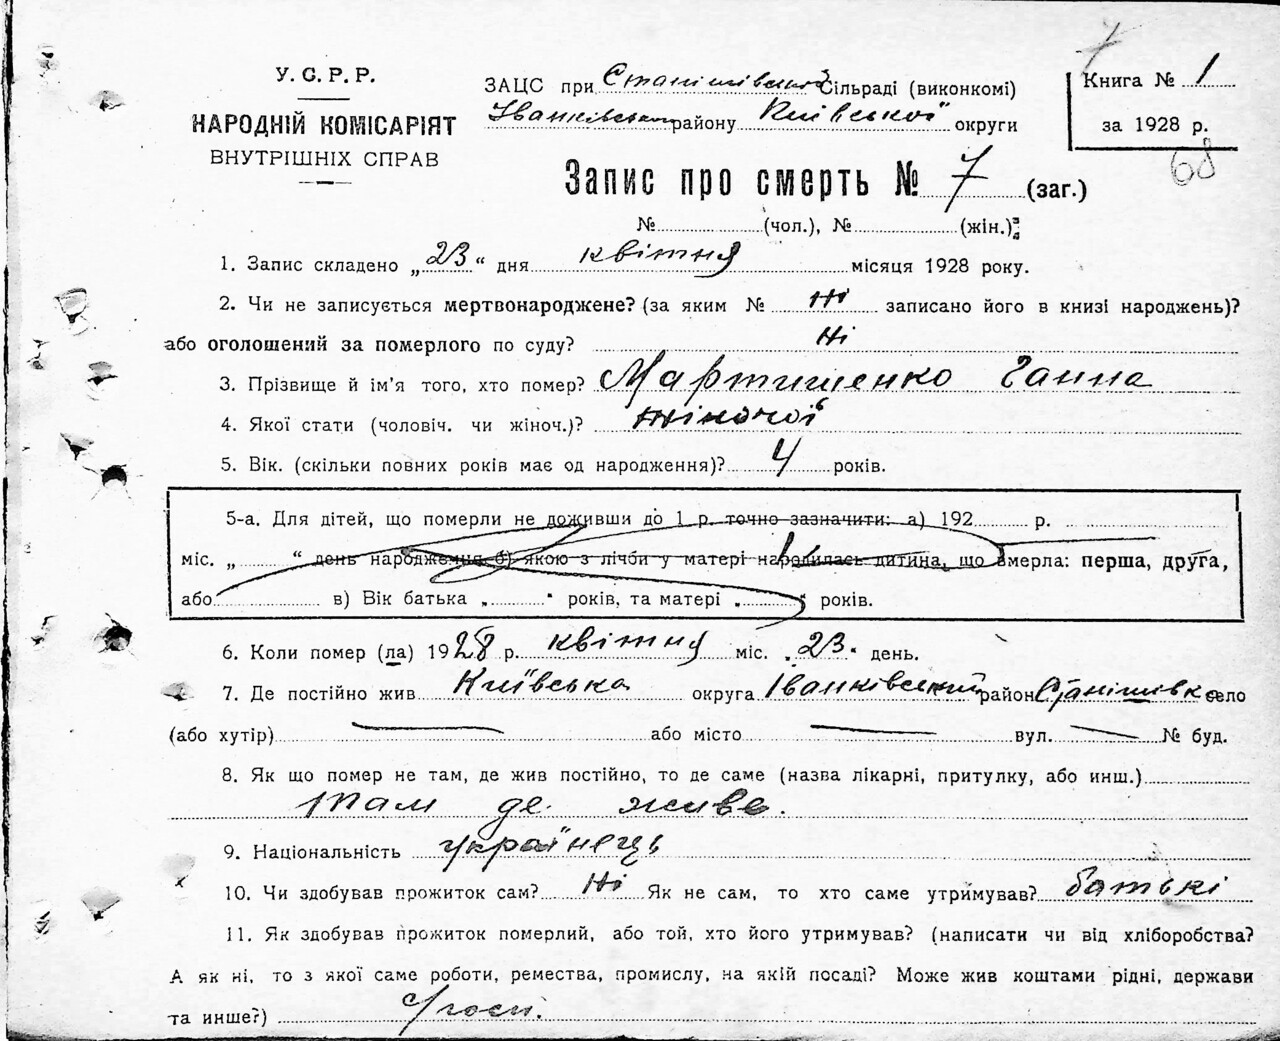 У. С. Р. Р.
НАРОДНІЙ КОМІСАРІЯТ
ВНУТРІШНІХ СПРАВ
ЗАЦС при Станішівській Сільраді (виконкомі)
Іванківського району Київської округи
Книга № 1
за 1928 р.
68
Запис про смерть № 7 (заг.)
№ (чол.), № (жін.)
1. Запис складено „23“ дня квітня місяця 1928 року.
2. Чи не записується мертвонароджене? (за яким № Ні записано його в книзі народжень)?
або оголошений за померлого по суду? Ні
3. Прізвище й ім'я того, хто помер? Мартишенко Ганна
4. Якої стати (чоловіч. чи жіноч.)? жіночої
5. Вік. (скільки повних років має од народження)? 4 років.
5-а. Для дітей, що померли не доживши до 1 р. точно зазначити: а) 192 р.
міс. „ “ день народження б) якою з лічби у матері народилась дитина, що вмерла: перша, друга,
або в) Вік батька „ “ років, та матері „ “ років.
6. Коли помер (ла) 1928 р. квітня міс. „23“ день.
7. Де постійно жив Київська округа Іванківський район Станішівка село
(або хутір) або місто вул. № буд.
8. Як що помер не там, де жив постійно, то де саме (назва лікарні, притулку, або инш.)
там де живе.
9. Національність українець
10. Чи здобував прожиток сам? Ні Як не сам, то хто саме утримував? батькі
11. Як здобував прожиток померлий, або той, хто його утримував? (написати чи від хліборобства?
А як ні, то з якої саме роботи, ремества, промислу, на якій посаді? Може жив коштами рідні, держави
та инше?)